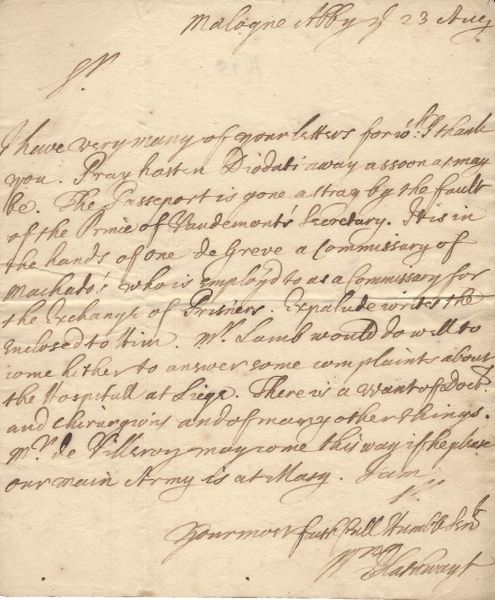 Malogne Abby ye 23 Aug
Sr
I have very many of your letters for wch I thank
you. Pray hasten Diodati away as soon as may
be. The Passeport is gone astray by the fault
of the Prince of Vaudemonts Secretary. It is in
the hands of one de Greve a Commissary of
Machado's who is employ'd to as a Commissary for
the Exchange of Prisners. write the
Enclosed to Him. Mr Lamb would do well to
come hither to answer some complaints about
the Hospitall at Liege. There is a want of Doctrs
and Chirurgions and of many other things.
Mr de Villeroy may come this way if he please
our main Army is at Masy. I am
Sr
Your most faithfull Humble Servt
Wm Blathwayt